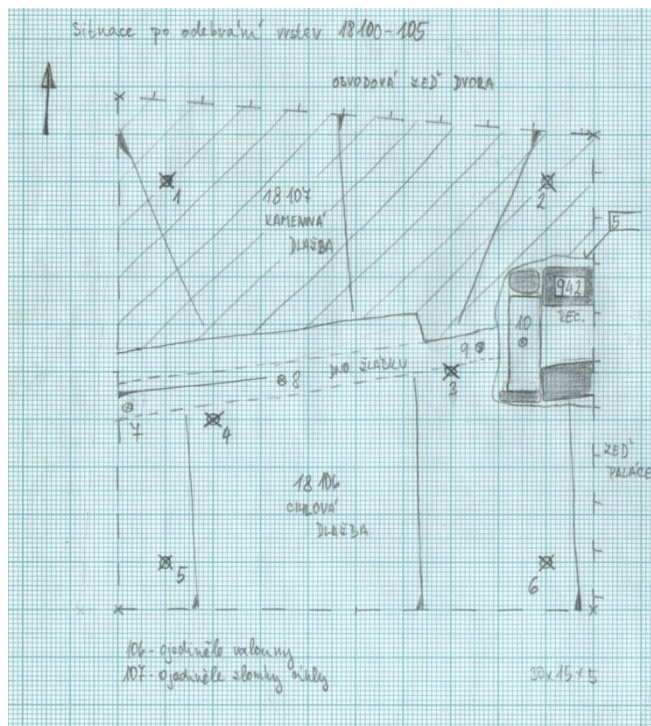 Situace po odebrání vrstev 18100-105
OBVODOVÁ ZEĎ DVORA
1
2
18107
KAMENNÁ
DLAŽBA
5
942
ZEĆ.
10
9
DNO ŽLÁBKU
8
3
7
4
ZEĎ
PALÁCE
18106
CIHLOVÁ
DLAŽBA
5
6
106 - ojediněle valouny
107 - ojediněle zlomky cihly
30x15x5